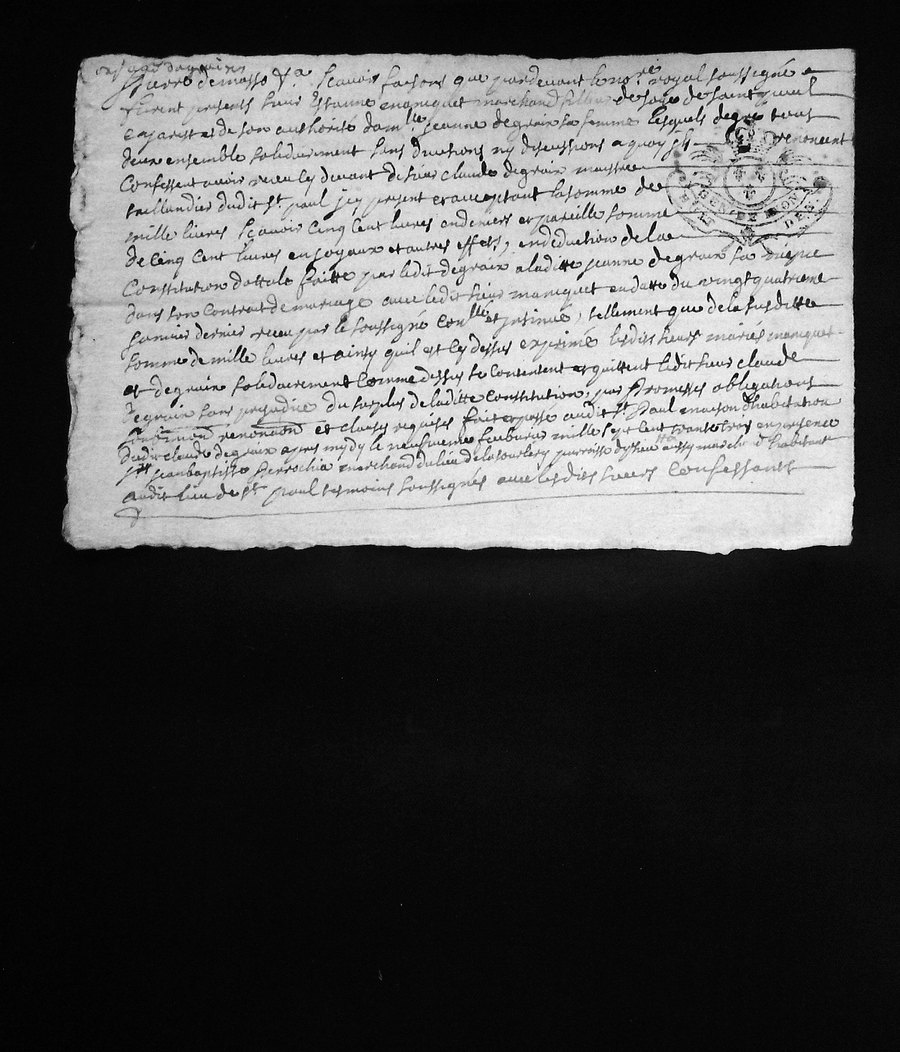 Pierre demasso &a. Scavoir faisons que pardevant le no.re royal soussigné
furent presents sieur Estienne maniquet marchand de soye de saint
et de son authorité dam.lle jeanne degraix sa femme lesquels degré tous
deux ensemble solidairement sans divisions ny discussions a quoy renoncent
Confessent avoir receu cy devant de sieur claude degraix
taillandier dudit S.t paul icy present et acceptant la somme de
mille livres scavoir cinq cent livres en deniers et pareille somme
de cinq cent livres en joyaux et autres effets, en deduction de la
Constitution dottale faitte par ledit degraix a laditte jeanne degraix sa
dans son contrat de mariage avec ledit sieur maniquet en datte du vingt quatrieme
janvier dernier receu par le soussigné con.lle et insinué, tellement que de la susditte
somme de mille livres et ainsy quil est cy dessus exprimé lesdits sieurs mariés maniquet
et degraix solidairement comme dessus se contentent et quittent ledit sieur claude
degraix sans prejudice du surplus de laditte constitution, par Promesses obligations
renonciaon et clauses requises fait et passé audit S.t Paul maison d'habitation
dudit claude degraix apres mydy le neufvieme febvrier mille sept cent trente trois en presence
jean baptiste marchand du lieu de
audit lieu de S.t paul tesmoins soussignés avec lesdits sieurs Confessants